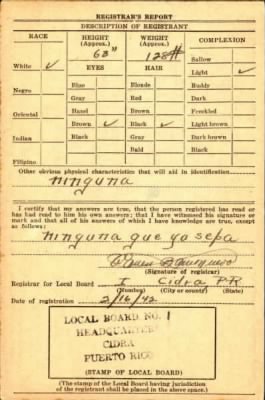 REGISTRAR'S REPORT
DESCRIPTION OF REGISTRANT
RACE HEIGHT (Approx.) WEIGHT (Approx.) COMPLEXION
63" 128#
White ✓ EYES HAIR Sallow
Light ✓
Negro Blue Blonde Ruddy
Gray Red Dark
Oriental Hazel Brown Freckled
Brown ✓ Black ✓ Light brown
Indian Black Gray Dark brown
Bald Black
Filipino
Other obvious physical characteristics that will aid in identification
ninguna
I certify that my answers are true, that the person registered has read or
has had read to him his own answers; that I have witnessed his signature or
mark and that all of his answers of which I have knowledge are true, except
as follows:
ninguna que yo sepa
(Signature of registrar)
Registrar for Local Board I Cidra P.R.
(Number) (City or county) (State)
Date of registration 2/16/42
LOCAL BOARD NO. 1
HEADQUARTERS
CIDRA
PUERTO RICO
(STAMP OF LOCAL BOARD)
(The stamp of the Local Board having jurisdiction
of the registrant shall be placed in the above space.)